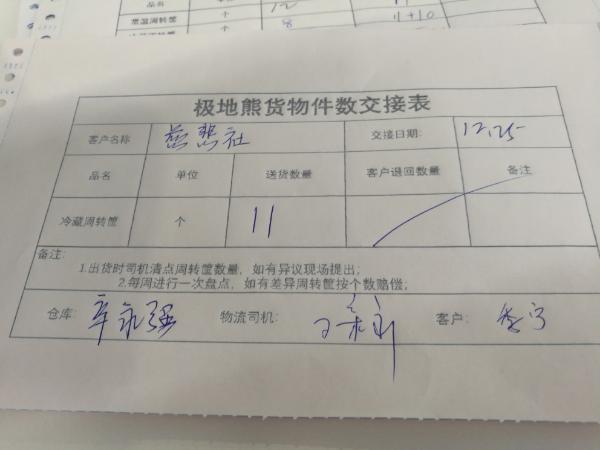 常温周转筐 个 8 11+10
极地熊货物件数交接表
客户名称 慈盟社 交接日期: 12.25
品名 单位 送货数量 客户退回数量 备注
冷藏周转筐 个 11
备注:
1.出货时司机清点周转筐数量,如有异议现场提出;
2.每周进行一次盘点,如有差异周转筐按个数赔偿;
仓库: 辛永强 物流司机: 客户: 李宁